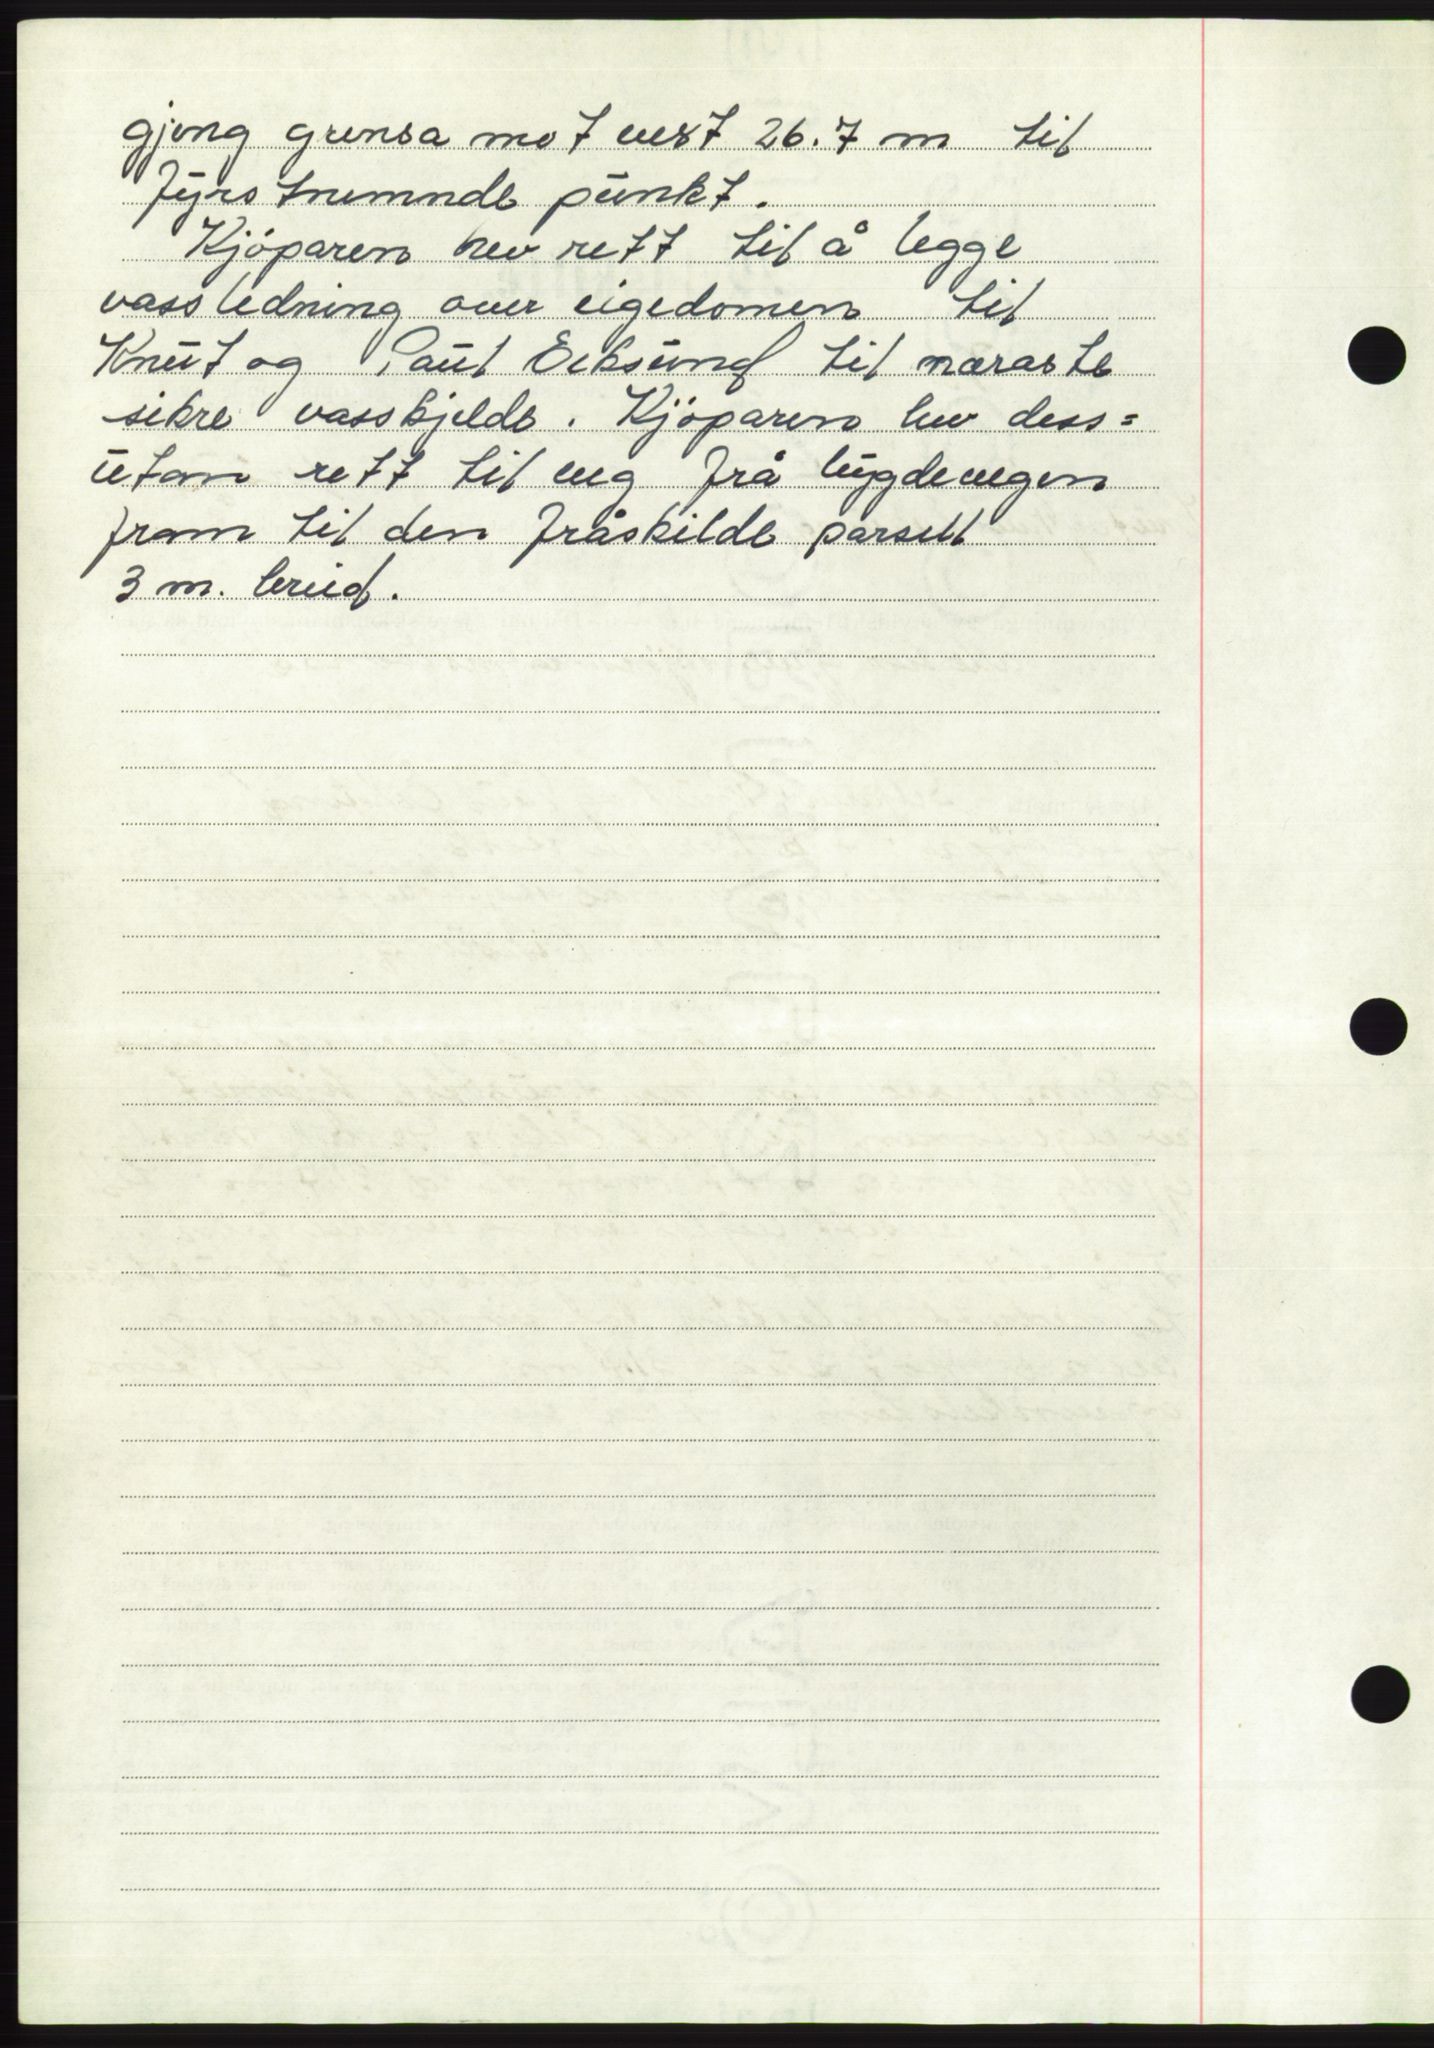 gjeng grensa mot vest 26.7 m til
fyrstnemnde punkt.
Kjöparen hev rett til å legge
vassledning over eigedomen til
Knut og Paul Eiksund til næraste
sikre vasskjelde. Kjöparen hev dess=
utan rett til veg frå bygdevegen
fram til den fråskilde parsell
3 m. breid.